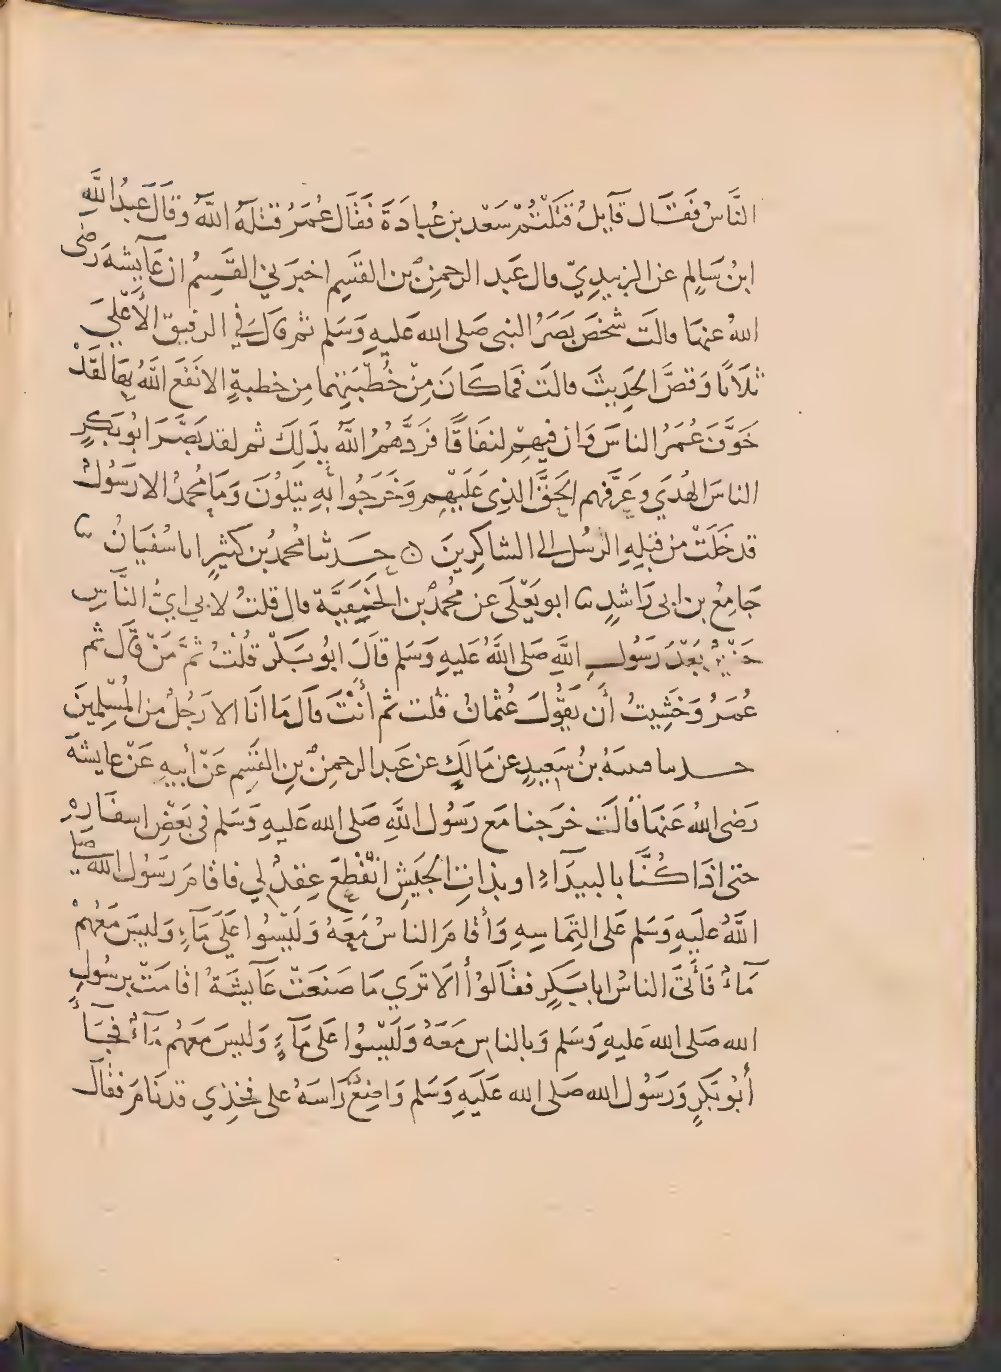 النَّاسُ فَقَال قَآئِلٌ قَتَلْتُمْ سَعْد بن عُبادَةَ فَقَال عُمَرُ قتَلَهُ اللَّهُ وَقَالَ عَبدُ اللَّهِ
ابنُ سَالِم عن الزبيدِيّ قال عَبد الرحمنِ بن القَسِم اخبرَني القَسِمُ ان عَآيشَةَ رَضى
اللهُ عنهَا قالَت شَخَصَ بَصَرُ النبى صَلى الله عَليهِ وَسَلم ثم قال في الرفيق الأَعْلَي
ثلَاثًا وَقصَّ الحَدِيثَ قالَت فمَا كانَ مِنْ خُطْبَتِهِما مِن خطبةٍ الا نَفَع اللَّهُ بهَا لقَدْ
خَوَّفَ عُمَرُ الناسَ وَان فيهِمْ لنفَاقًا فرَدَّهُمُ اللَّهُ بِذَلِكَ ثم لقد بَصَّرَ ابُو بَكرٍ
الناسَ الهُدَي وعَرَّفهم الحَقَّ الذِى عَلَيْهِم وَخَرَجُوا بهِ يَتلُونَ وَمَا محمدٌ الا رَسُولٌ
قد خَلَتْ من قبلِهِ الرُسُل الى الشاكِرِينَ ه حدثنا محمدُ بن كثيرٍ انا سُفيَانُ ثنا
جَامِعُ بن ابى رَاشدٍ ثنا ابو يَعْلَى عن محمدِ بن الحَنَفِيَّة قال قلتُ لابي ايُّ النَّاسِ
خَيْرٌ بَعْدَ رَسُولِ اللَّهِ صَلى اللَّهُ عَليهِ وَسَلم قَالَ ابُو بَكر قُلتُ ثمَّ مَنْ قَال ثم
عُمَرُ وَخَشِيتُ أَن يَقُولَ عُثْمانُ قلت ثم أَنْتَ قال مَا انَا الا رَجُلٌ من المُسْلِمينَ
حدثنا قتيبَةُ بنُ سَعِيدٍ عن مَالِكٍ عن عَبد الرحمنِ بنِ القَسِم عَنْ أَبيهِ عَنْ عايشَةَ
رَضى اللهُ عَنهَا قالَت خرَجنا مَع رَسُول اللَّهِ صَلى الله عَليهِ وَسَلم فى بَعْضِ اسفَارِهِ
حتى اذَا كُنَّا بالبيدَآءِ او بذاتِ الجَيشِ انقَطَعَ عِقدٌ لي فاقامَ رَسُول الله صَلى
اللَّهُ علَيهِ وَسَلم عَلى التِمَاسِهِ وَأقامَ الناسُ مَعَهُ وَلَيْسُوا عَلَي مَآءٍ وَليسَ مَعَهُمْ
مَآءٌ فَأَتَى الناسُ ابا بَكرٍ فقَالوُا أَلَا تَرَي مَا صَنعَتْ عَآيشَةُ اقامَتْ برسُولِ
الله صَلى الله عَليهِ وَسَلم وَبالناس مَعَهُ وَلَيْسُوا عَلى مَآءٍ وَليسَ مَعَهُم مَآءٌ فجَآءَ
أَبُو بَكرٍ وَرَسُول الله صَلى الله عَلَيهِ وَسَلم وَاضِعٌ رَاسَهُ على فخِذِي قد نَامَ فقَالَ